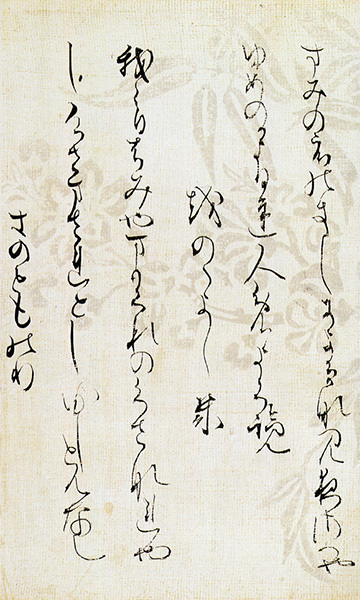 すみの江のきしによるなみよるさへや
ゆめのかよひ人めよくらむ
をのゝよし樹
我こひはみやまかくれのくさなれや
しけさまされとしる人なし
きのとものり